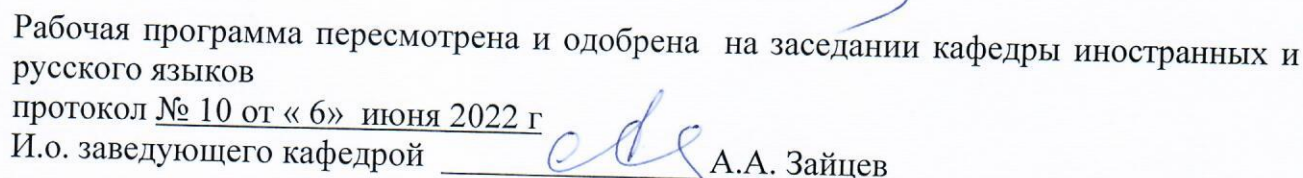 Рабочая программа пересмотрена и одобрена на заседании кафедры иностранных и
русского языков
протокол № 10 от « 6» июня 2022 г
И.о. заведующего кафедрой ____________________ А.А. Зайцев